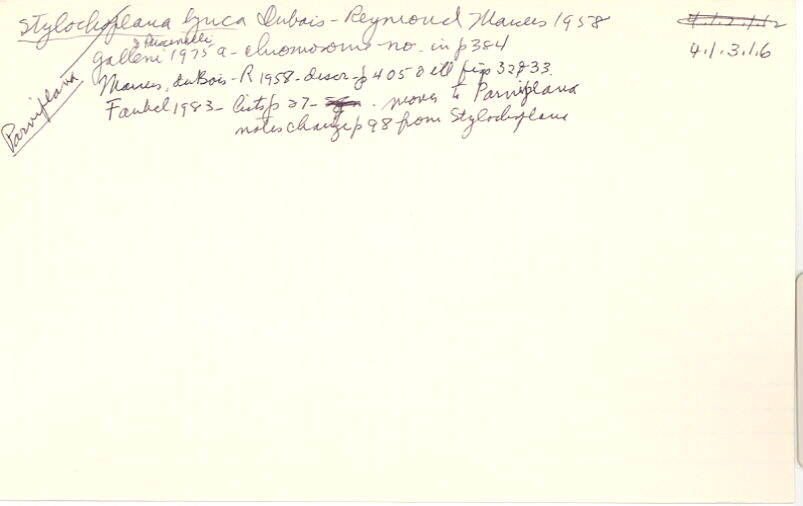 Stylochoplana lynca Dubois-Reymond Marcus 1958
4.1.2.1.12
4.1.3.1.6
& Puccinelli
Galleni 1975 a - chromosome no. in p 384
Marcus, duBois-R 1958 - descr - p 405 & ill figs 32 & 33.
Faubel 1983 - lists p 27 - . moves to Parviplana
notes change p 98 from Stylochoplana
Parviplana